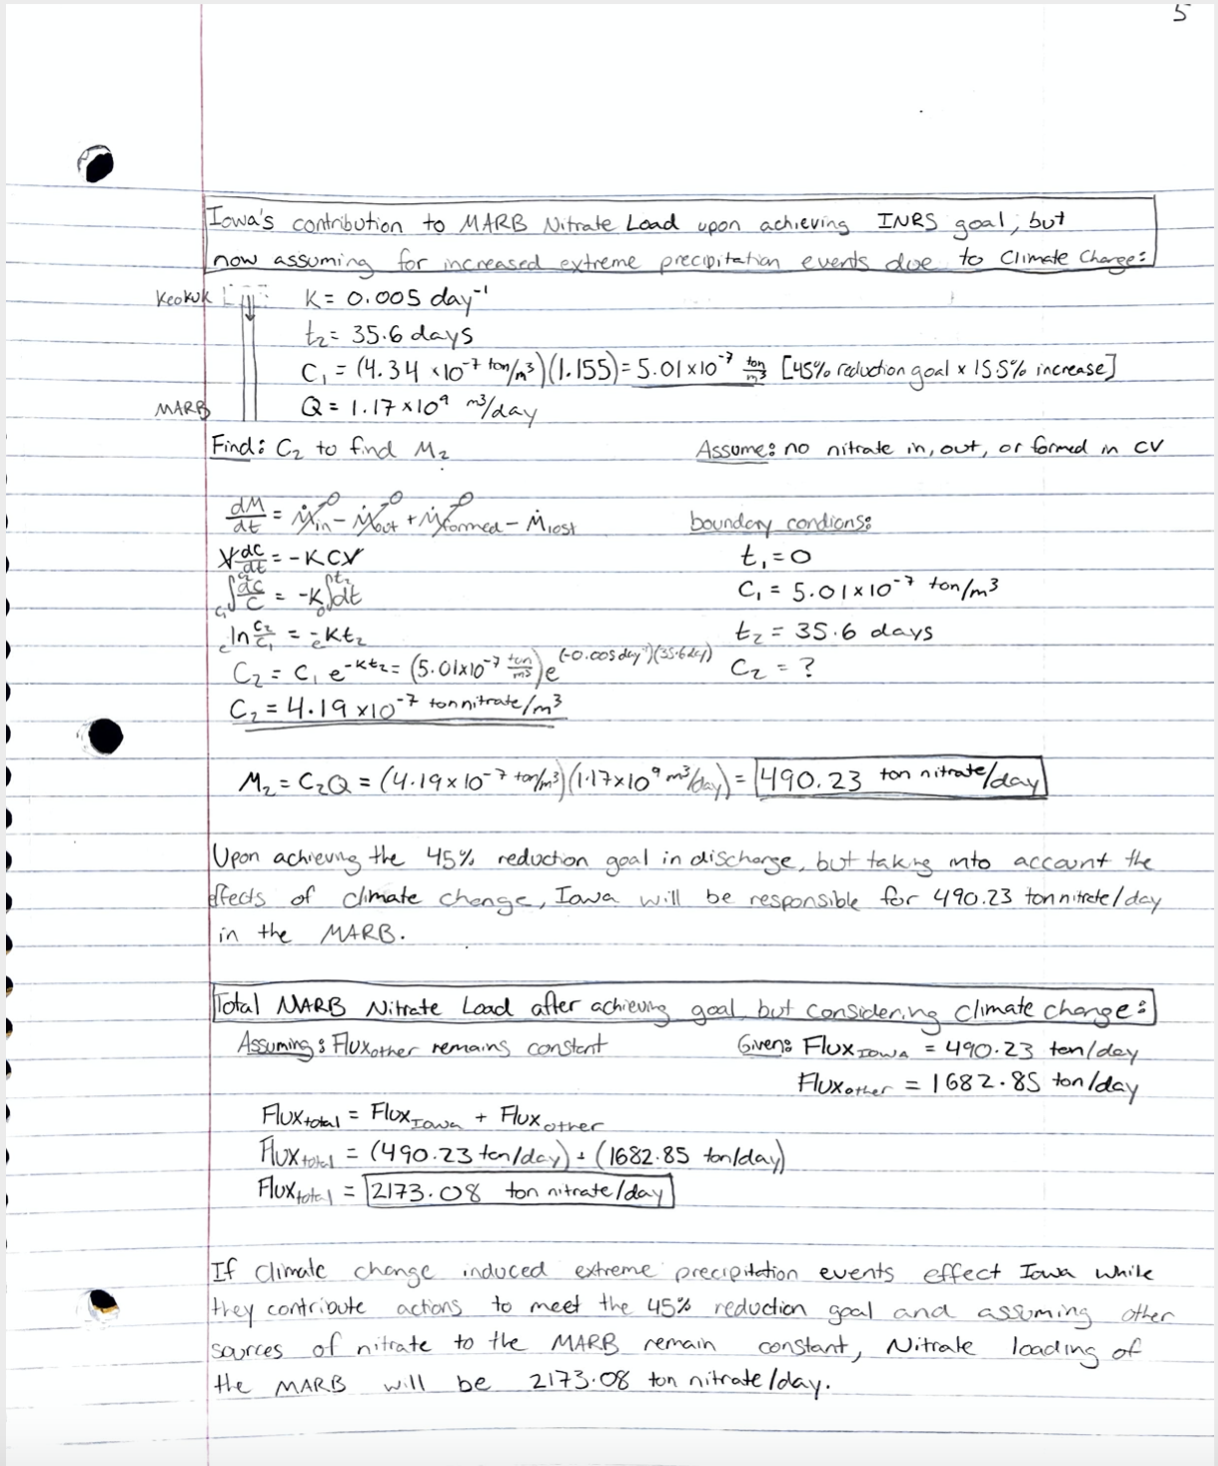 5
Iowa's contribution to MARB Nitrate Load upon achieving INRS goal, but
now assuming for increased extreme precipitation events due to Climate Change:
Keokuk
K = 0.005 day⁻¹
t₂ = 35.6 days
C₁ = (4.34 ×10⁻⁷ ton/m³)(1.155) = 5.01×10⁻⁷ ton/m³ [45% reduction goal × 15.5% increase]
MARB
Q = 1.17×10⁹ m³/day
Find: C₂ to find M₂
Assume: no nitrate in, out, or formed in CV
dM/dt = Ṁin - Ṁout + Ṁformed - Ṁlost
0 0 0
boundary condions:
V dc/dt = -KCV
t₁ = 0
∫c₁^c₂ dc/C = -K∫0^t₂ dt
C₁ = 5.01×10⁻⁷ ton/m³
e^ln C₂/C₁ = e^-Kt₂
t₂ = 35.6 days
C₂ = C₁ e^-Kt₂ = (5.01×10⁻⁷ ton/m³)e^(-0.005day⁻¹)(35.6day)
C₂ = ?
C₂ = 4.19 ×10⁻⁷ ton nitrate/m³
M₂ = C₂Q = (4.19×10⁻⁷ ton/m³)(1.17×10⁹ m³/day) = 490.23 ton nitrate/day
Upon achieving the 45% reduction goal in discharge, but taking into account the
effects of climate change, Iowa will be responsible for 490.23 ton nitrate/day
in the MARB.
Total MARB Nitrate Load after achieving goal but considering climate change:
Assuming: Flux other remains constant
Given: Flux Iowa = 490.23 ton/day
Flux other = 1682.85 ton/day
Flux total = Flux Iowa + Flux other
Flux total = (490.23 ton/day) + (1682.85 ton/day)
Flux total = 2173.08 ton nitrate/day
If climate change induced extreme precipitation events effect Iowa while
they contribute actions to meet the 45% reduction goal and assuming other
sources of nitrate to the MARB remain constant, Nitrate loading of
the MARB will be 2173.08 ton nitrate/day.